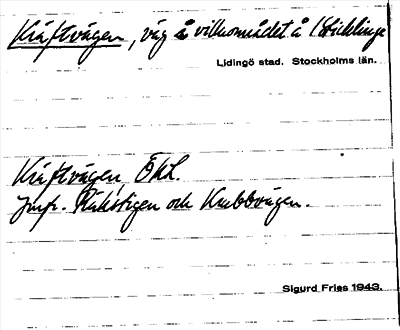 Kräftvägen, väg å villaområdet å Bricklinge
Lidingö stad. Stockholms län.
Kräftvägen, ÖKL.
Jmfr. Räkstigen och Krabbvägen.
Sigurd Fries 1943.